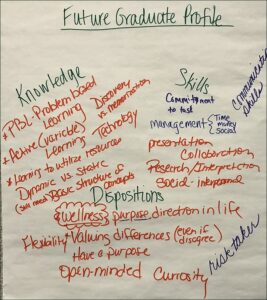 Future Graduate Profile
Knowledge
* PBL-Problem based
Learning
* Active (variable)
Learning
* Learning to utilize resources
Dynamic vs Static
base structure of concepts
Discovery
vs memorization
Technology
Skills
Commitment
to task
management
Time
money
Social
presentation
Collaboration
Research/Interpretation
Social - interpersonal
communication
skills
Dispositions
wellness purpose, direction in life
Flexibility + Valuing differences (even if
disagree)
Have a purpose
Open-minded Curiosity
risk taker